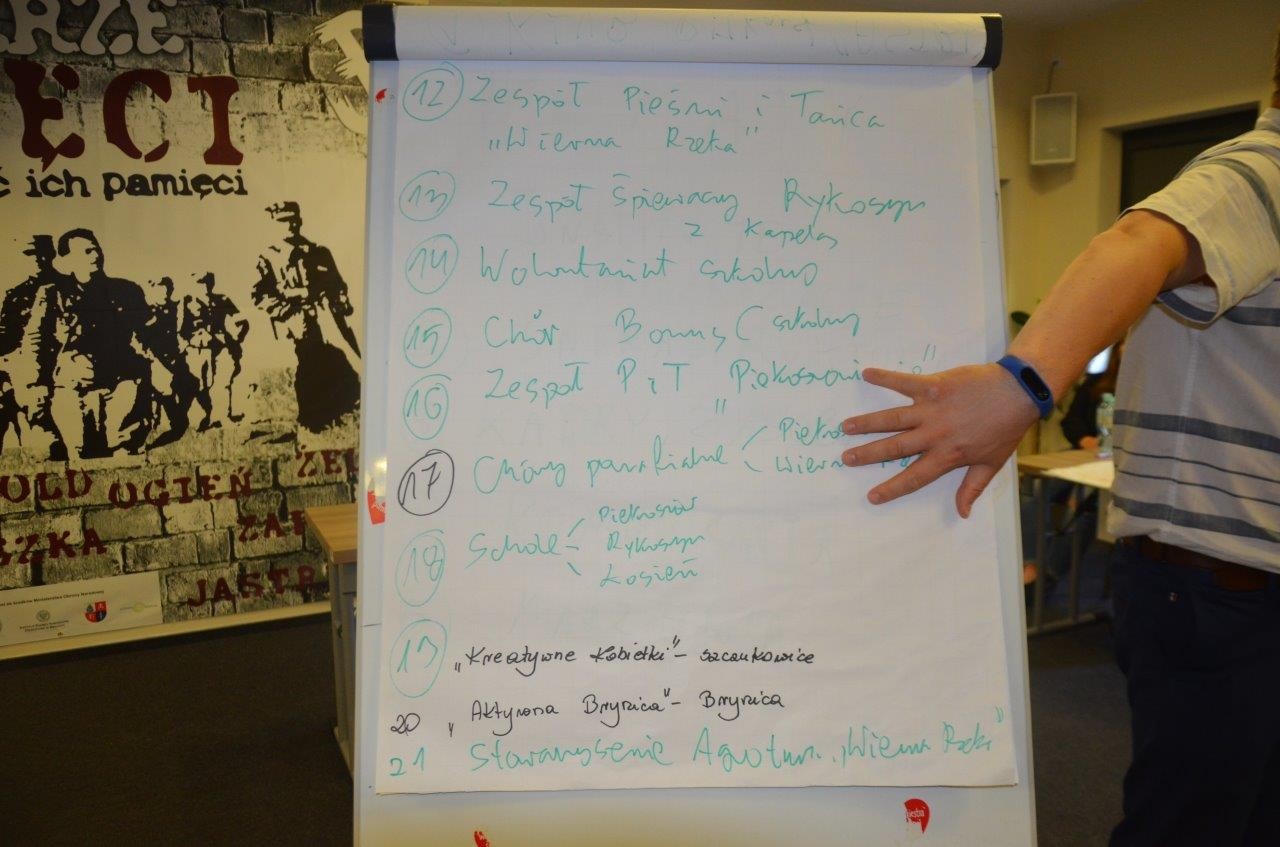 RZE
ĘCI
ć ich pamięci
OLD OGIEŃ ŻEL
SZKA ZAP
JASTR
12 Zespół Pieśni i Tańca
"Wierna Rzeka"
13 Zespół Śpiewaczy Rykoszyn
z Kapelą
14 Wolontariat szkolny
15 Chór Bonus (szkolny
16 Zespół P i T "Piekoszowianie"
17 Chóry parafialne
Wierna
18 Schole - Piekoszów
Rykoszyn
Łosień
19 "Kreatywne Kobietki" - Szczukowice
20 "Aktywna Brynica" - Brynica
21 Stowarzyszenie Agrotur. "Wierna Rzeka"